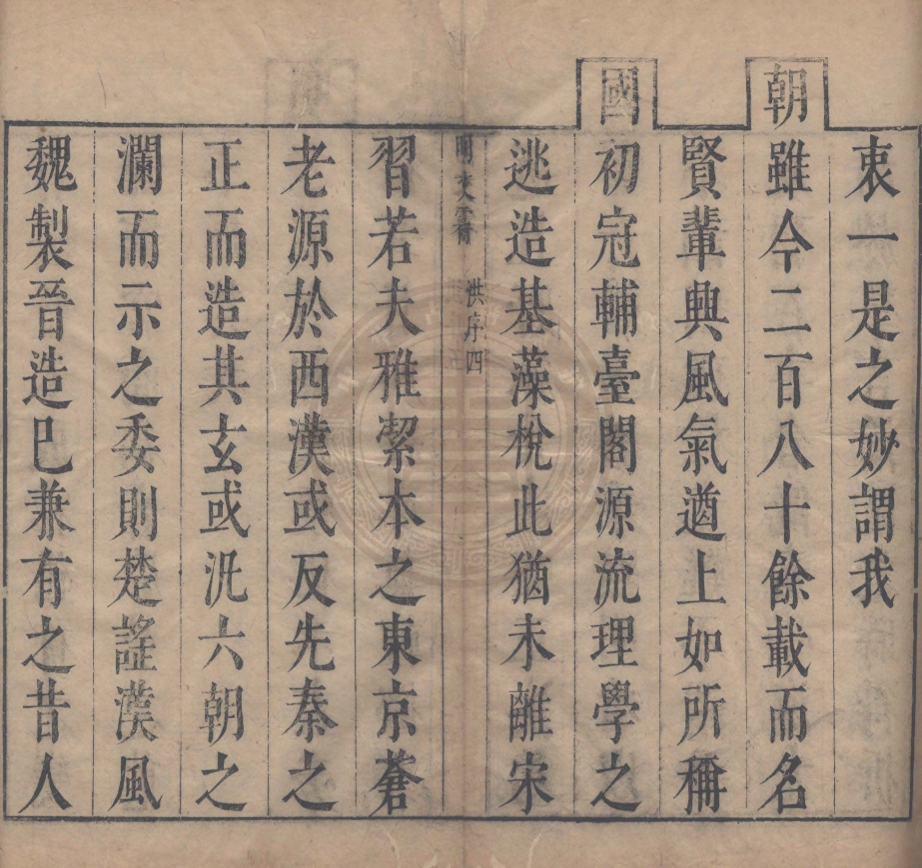 衷一是之妙謂我
朝雖今二百八十餘載而名
賢輩興風氣遒上如所稱
國初冠輔臺閣源流理學之
逃造基藻梲此猶未離宋
明文霱 洪序 四
習若夫雅絜本之東京蒼
老源於西漢或反先秦之
正而造其玄或汎六朝之
瀾而示之委則楚謠漢風
魏製晉造巳兼有之昔人